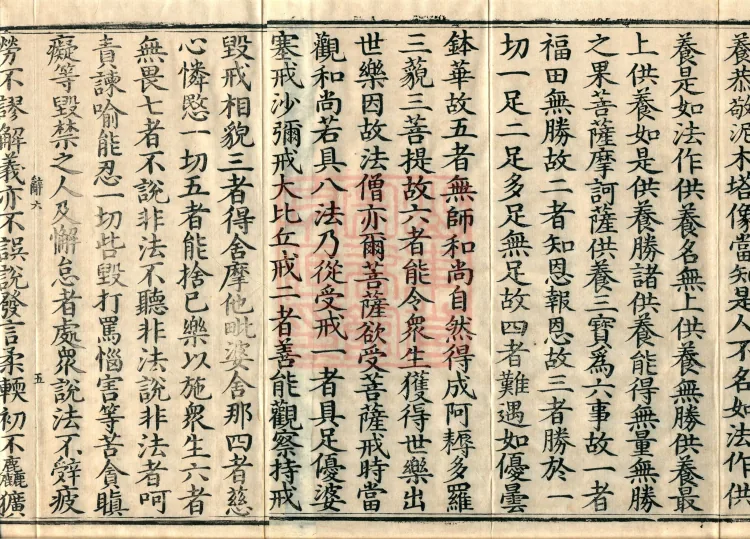 養恭敬泥木塔像當知是人不名如法作供
養是如法作供養名無上供養無勝供養最
上供養如是供養勝諸供養能得無量無勝
之果菩薩摩訶薩供養三寶爲六事故一者
福田無勝故二者知恩報恩故三者勝於一
切一足二足多足無足故四者難遇如優曇
鉢華故五者無師和尚自然得成阿耨多羅
三藐三菩提故六者能令衆生獲得世樂出
世樂因故法僧亦爾菩薩欲受菩薩戒時當
觀和尚若具八法乃從受戒一者具足優婆
塞戒沙彌戒大比丘戒二者善能觀察持戒
毀戒相貌三者得舍摩他毗婆舍那四者慈
心憐愍一切五者能捨已樂以施衆生六者
無畏七者不說非法不聽非法說非法者呵
責諫喻能忍一切呰毀打罵惱害等苦貪瞋
癡等毀禁之人及懈怠者處衆說法不辤疲
辭六
五
勞不謬解義亦不誤說發言柔輭初不麤獷